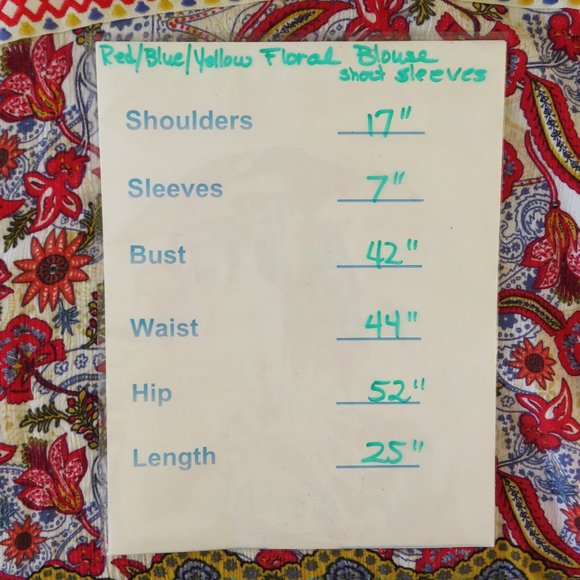 Red/Blue/Yellow Floral Blouse
short sleeves
Shoulders 17"
Sleeves 7"
Bust 42"
Waist 44"
Hip 52"
Length 25"